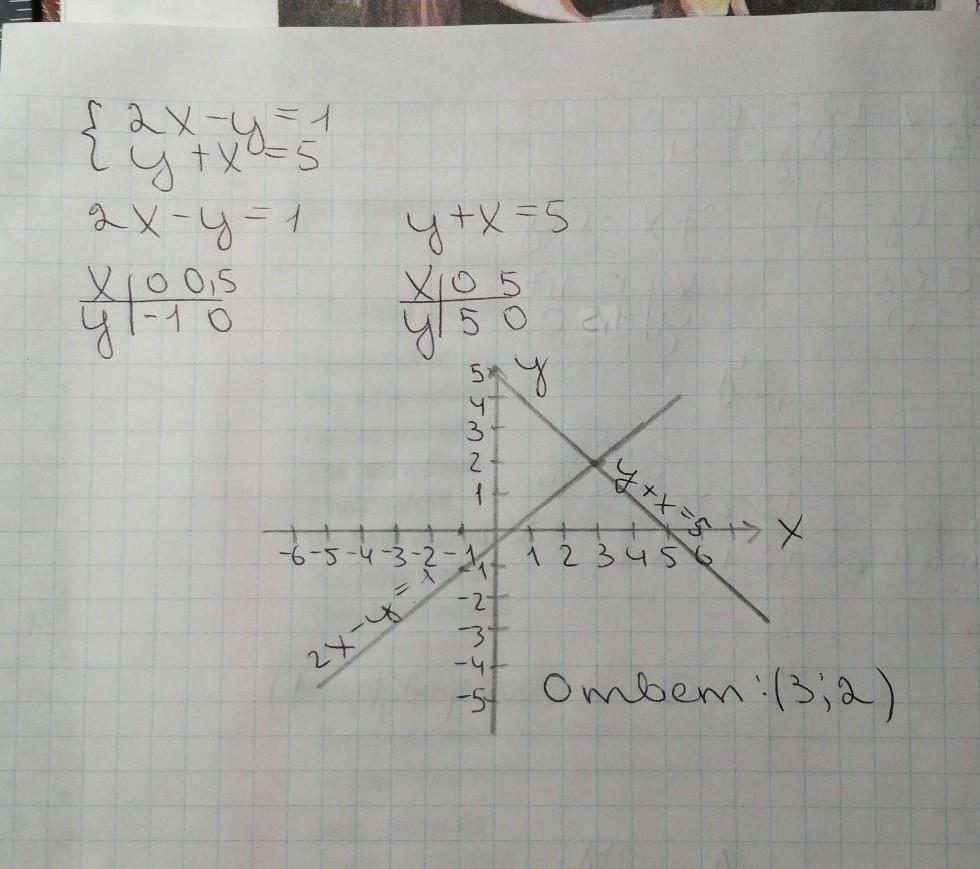 { 2x-y=1
y+x=5
2x-y=1 y+x=5
x | 0 0,5 x | 0 5
y | -1 0 y | 5 0
5 y
4
3
2
1
y+x=5
-6 -5 -4 -3 -2 -1 1 2 3 4 5 6 x
-1
2x-y=1
-2
-3
-4
-5
Ответ: (3;2)